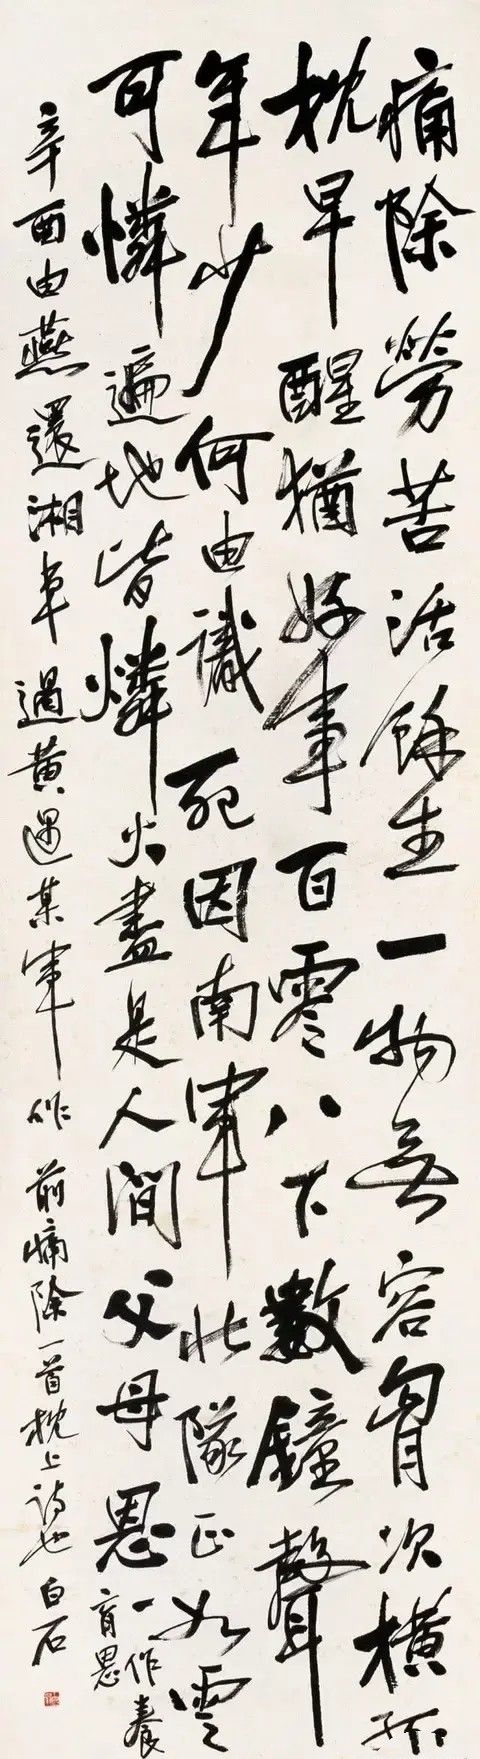 痛除勞苦活餘生一物無容胷次橫孤
枕早醒猶好事百零八下數鐘聲
年少何由識死因南軍北隊正如雲
可憐遍地皆燐火盡是人間父母恩
一作養
育恩
辛酉由燕還湘車過黃遇某軍作前痛除一首枕上詩也白石